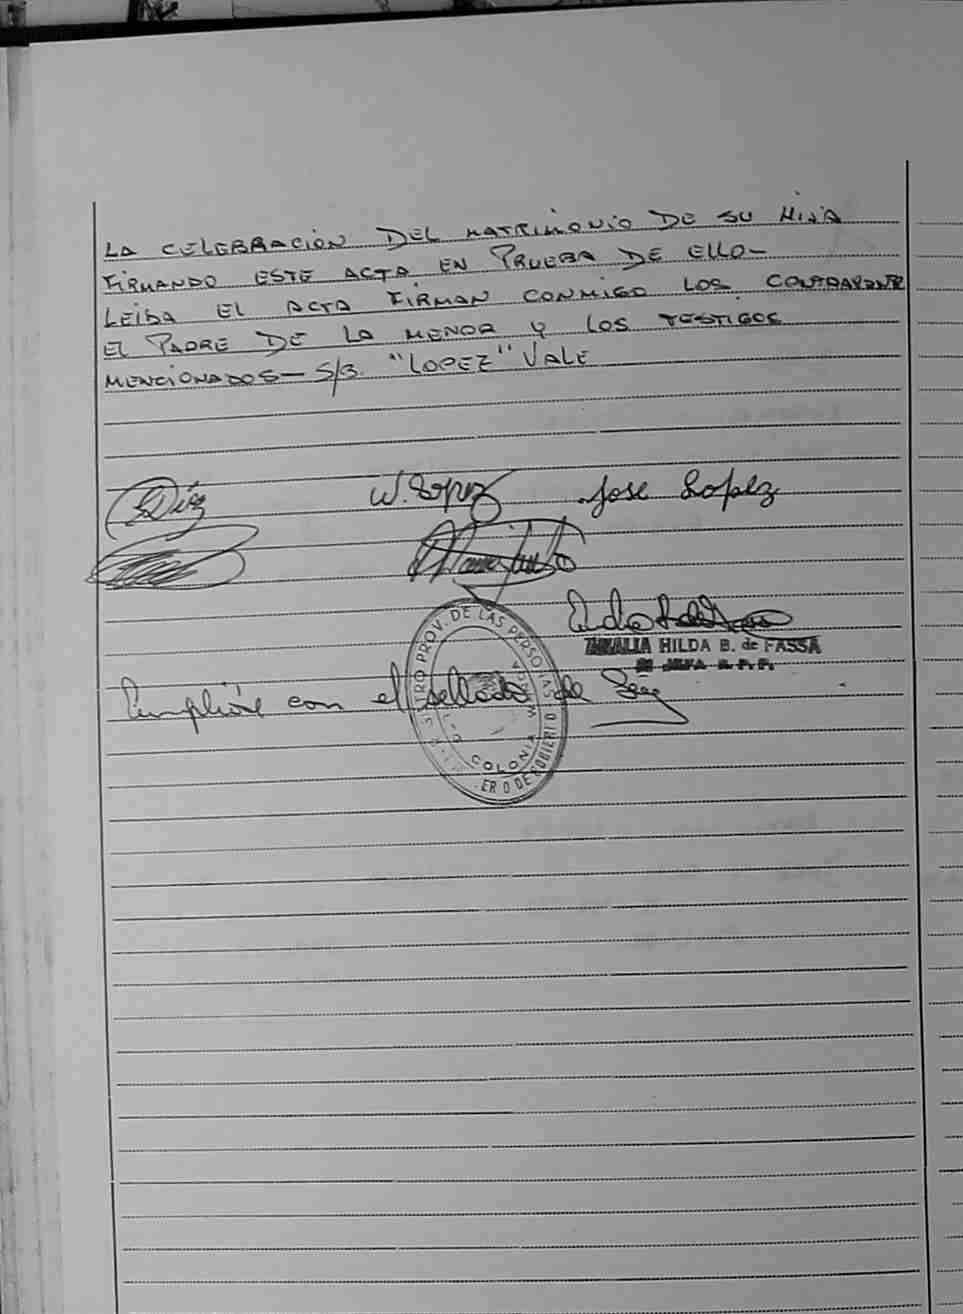 LA CELEBRACIÓN DEL MATRIMONIO DE SU HIJA
FIRMANDO ESTE ACTA EN PRUEBA DE ELLO-
LEIDA EL ACTA FIRMAN CONMIGO LOS CONTRAYENTE
EL PADRE DE LA MENOR Y LOS TESTIGOS
MENCIONADOS- S/B "LOPEZ" VALE
Díaz W. Lopez Jose Lopez
HILDA B. de FASSA
Cumplióse con el sellado de Ley
PROV. DE LAS PERSONAS
COLONIA